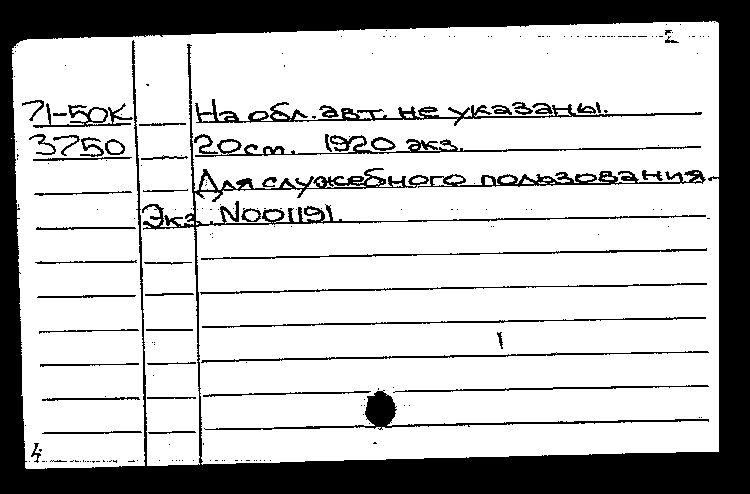 2
71-50К На обл. авт. не указаны.
3750 20 см. 1920 экз.
Для служебного пользования.
Экз. N001191.
1
4